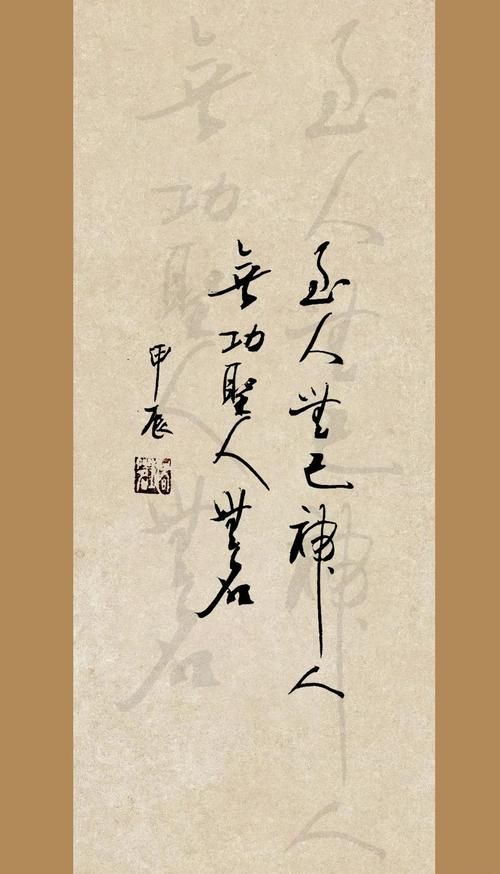 至人無己神人
無功聖人無名
甲辰